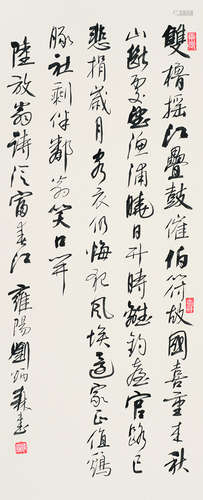 雙櫓搖江疊鼓催伯符故國喜重来秋
山斷處望漁浦曉日升時離釣臺官路已
悲捐歲月客衣仍悔犯風埃還家正值鷄
豚社剩伴鄰翁笑口開
陸放翁詩泛富春江 雍陽劉炳森書